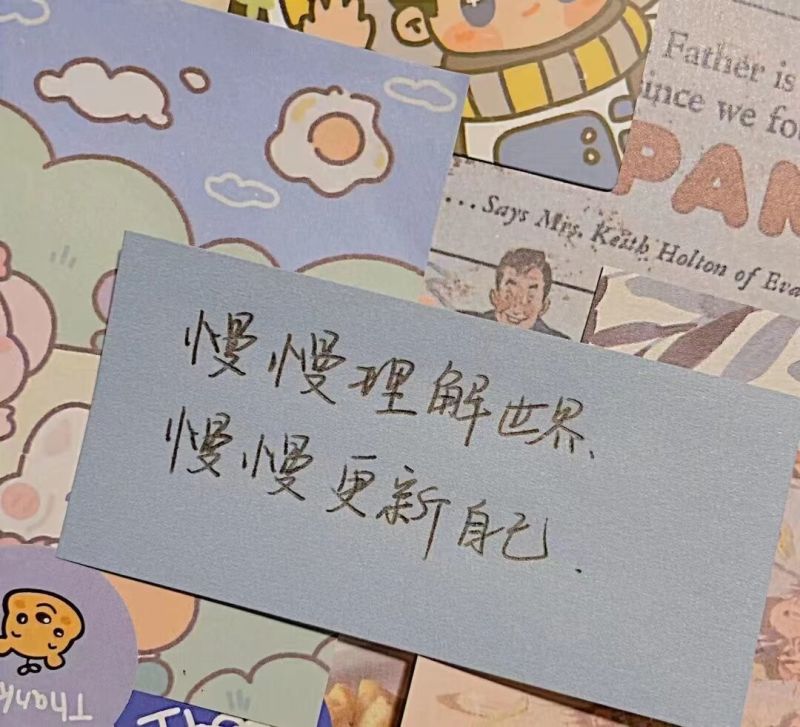 Father is
since we fo
PAN
...Says Mrs. Keith Holton of Eva
慢慢理解世界、
慢慢更新自己.
Thank